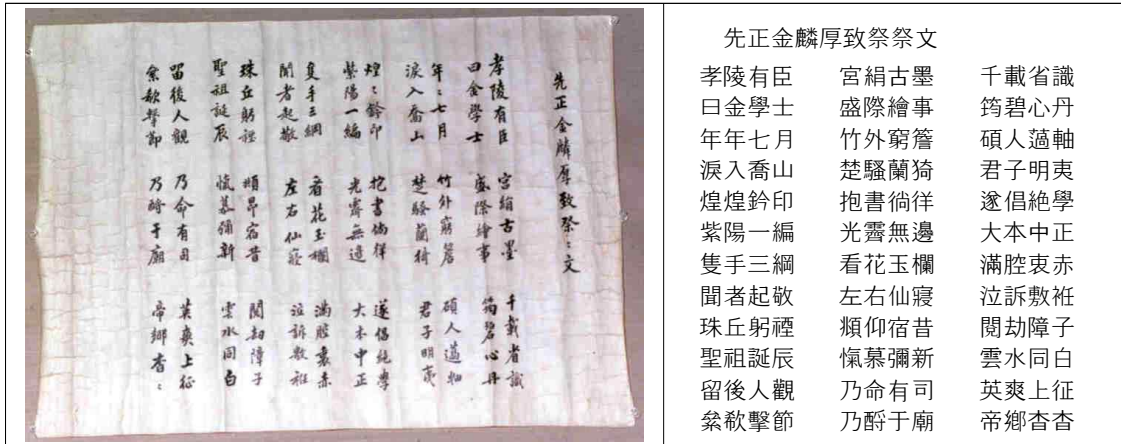 先正金麟厚致祭〻文
孝陵有臣 宮絹古墨 千載省識
曰金學士 盛際繪事 筠碧心丹
年〻七月 竹外窮簷 碩人薖軸
淚入喬山 楚騷蘭猗 君子明夷
煌〻鈐印 抱書徜徉 遂倡絶學
紫陽一編 光霽無邊 大本中正
隻手三綱 看花玉欄 滿腔衷赤
聞者起敬 左右仙寢 泣訴敷袵
珠丘躬禋 頫昂宿昔 閱劫障子
聖祖誕辰 愾慕彌新 雲水同白
留後人觀 乃命有司 英爽上征
絫欷擊節 乃酹于廟 帝鄉杳〻
先正金麟厚致祭祭文
孝陵有臣 宮絹古墨 千載省識
曰金學士 盛際繪事 筠碧心丹
年年七月 竹外窮簷 碩人薖軸
淚入喬山 楚騷蘭猗 君子明夷
煌煌鈐印 抱書徜徉 遂倡絶學
紫陽一編 光霽無邊 大本中正
隻手三綱 看花玉欄 滿腔衷赤
聞者起敬 左右仙寢 泣訴敷袵
珠丘躬禋 頫仰宿昔 閱劫障子
聖祖誕辰 愾慕彌新 雲水同白
留後人觀 乃命有司 英爽上征
絫欷擊節 乃酹于廟 帝鄉杳杳